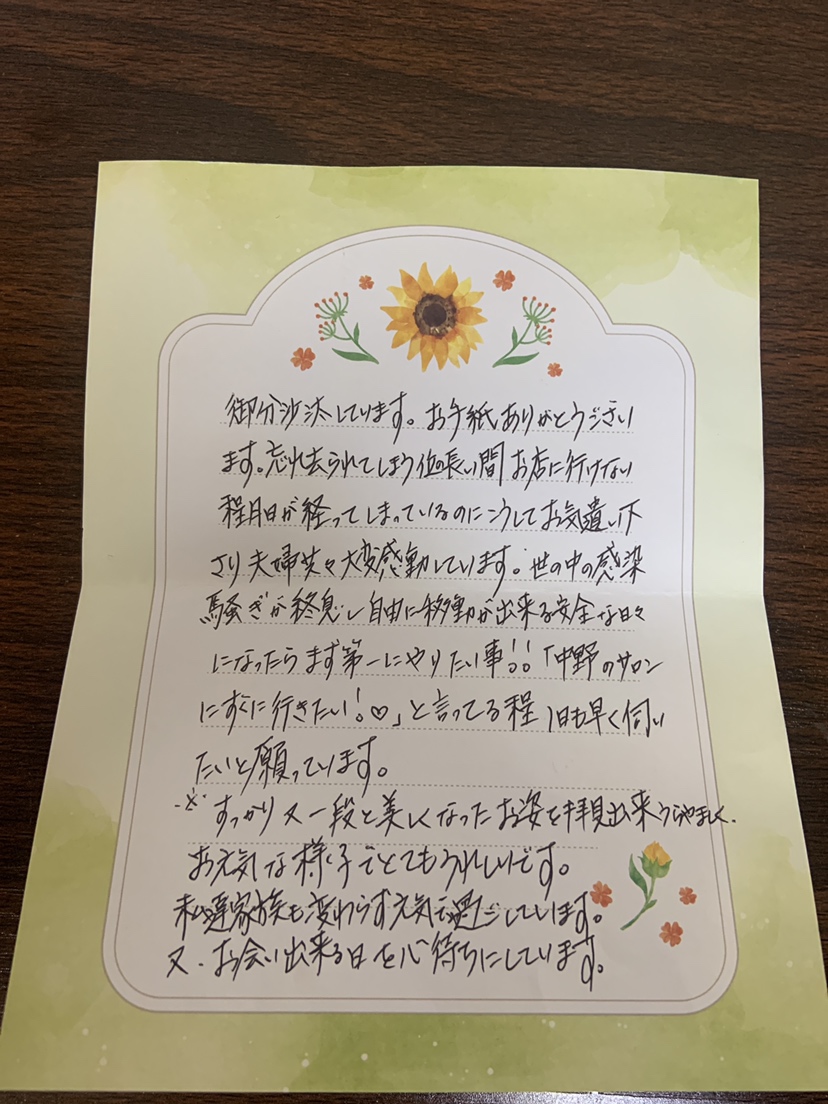 御分沙汰しています。お手紙ありがとうござい
ます。忘れ去られてしまう位の長い間お店に行けない
程月日が経ってしまっているのにこうしてお気遣い下
さり夫婦共々大変感動しています。世の中の感染
騒ぎが終息し自由に移動が出来る安全な日々
になったらまず第一にやりたい事!!「中野のサロン
にすぐに行きたい!♡」と言ってる程1日も早く伺い
たいと願っています。
すっかり又一段と美しくなったお姿を拝見出来うらやましく、
お元気な様子でとてもうれしいです。
私達家族も変わらず元気で過ごしています。
又、お会い出来る日を心待ちにしています。